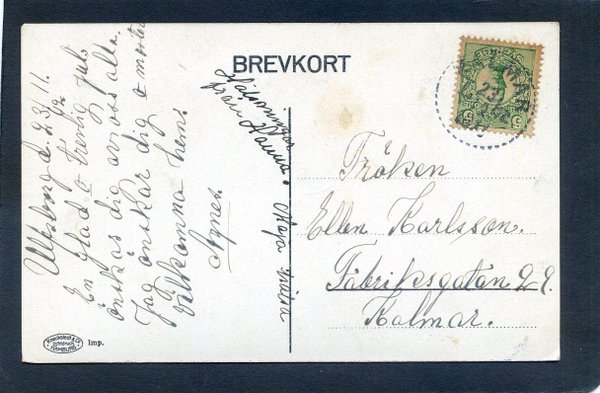 BREVKORT
d. 23/12 11.
En glad o trevlig jul
önskas dig av oss alla.
Jag önskar dig o moster
välkomna hem
Agnes.
Hälsningar
från Hanna
Maja
Fröken
Ellen Karlsson.
Fabriksgatan 29.
Kalmar.
KALMAR
5
5
Imp.